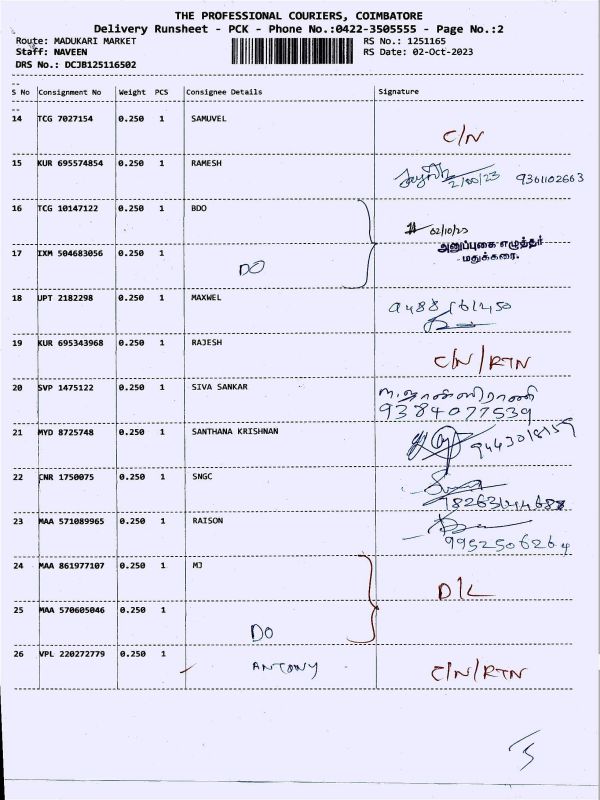 THE PROFESSIONAL COURIERS, COIMBATORE
Delivery Runsheet - PCK - Phone No.:0422-3505555 - Page No.:2
Route: MADUKARI MARKET RS No.: 1251165
Staff: NAVEEN RS Date: 02-Oct-2023
DRS No.: DCJB125116502
--
S No Consignment No Weight PCS Consignee Details Signature
--
14 TCG 7027154 0.250 1 SAMUVEL C/N
15 KUR 695574854 0.250 1 RAMESH 9361102663
16 TCG 10147122 0.250 1 BDO 02/10/23
அனுப்புகை எழுத்தர்
மதுக்கரை.
17 IXM 504683056 0.250 1 DO
18 UPT 2182298 0.250 1 MAXWEL
19 KUR 695343968 0.250 1 RAJESH C/N/RTN
20 SVP 1475122 0.250 1 SIVA SANKAR
9384077539
21 MYD 8725748 0.250 1 SANTHANA KRISHNAN 9443018159
22 CNR 1750075 0.250 1 SNGC
23 MAA 571089965 0.250 1 RAISON
9952506264
24 MAA 861977107 0.250 1 MJ D/L
25 MAA 570605046 0.250 1 DO
26 VPL 220272779 0.250 1 ANTONY C/N/RTN